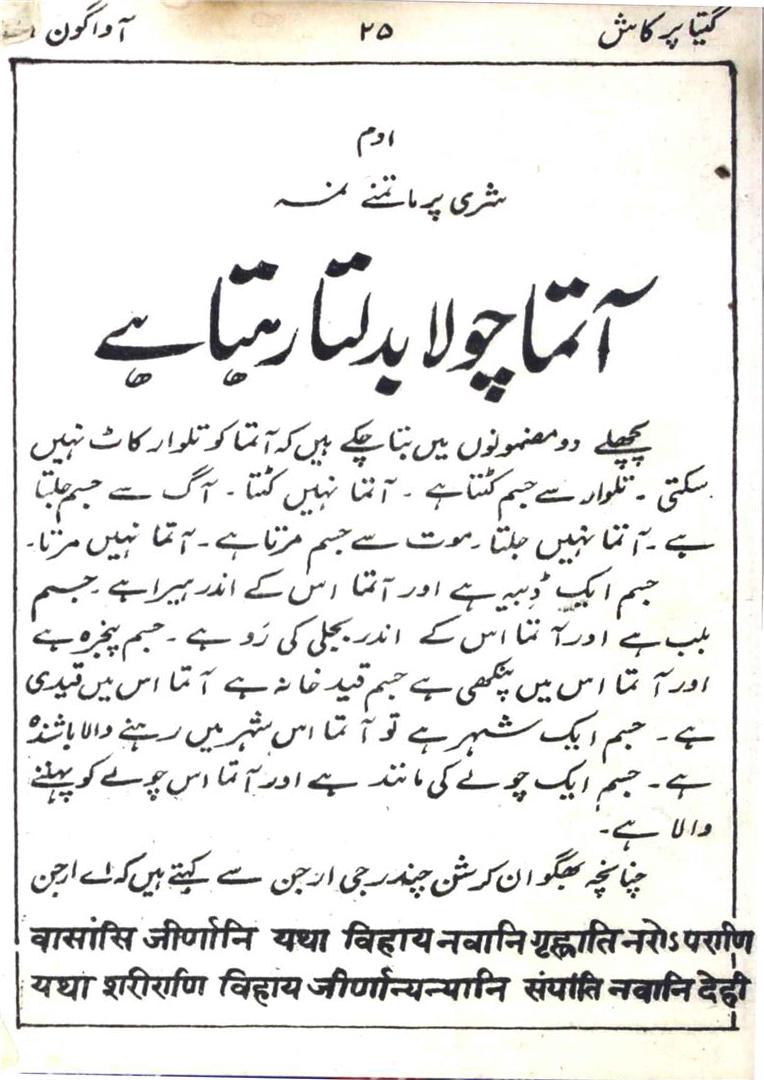 گیتا پرکاش ۲۵ آواگون
اوم
شری پرماتمنے نمہ
آتما چولا بدلتا رہتا ہے
پچھلے دو مضمونوں میں بتا چکے ہیں کہ آتما کو تلوار کاٹ نہیں
سکتی ۔ تلوار سے جسم کٹتا ہے ۔ آتما نہیں کٹتا ۔ آگ سے جسم جلتا
ہے ۔ آتما نہیں جلتا ۔ موت سے جسم مرتا ہے ۔ آتما نہیں مرتا ۔
جسم ایک ڈبیہ ہے اور آتما اس کے اندر ہیرا ہے ۔ جسم
بلب ہے اور آتما اس کے اندر بجلی کی رَو ہے ۔ جسم پنجرہ ہے
اور آتما اس میں پنکھی ہے جسم قید خانہ ہے آتما اس میں قیدی
ہے ۔ جسم ایک شہر ہے تو آتما اس شہر میں رہنے والا باشندہ
ہے ۔ جسم ایک چولے کی مانند ہے اور آتما اس چولے کو پہننے
والا ہے ۔
چنانچہ بھگوان کرشن چندر جی ارجن سے کہتے ہیں کہ اے ارجن
वासांसि जीर्णानि यथा विहाय नवानि गृह्णाति नरोऽ पराणि
यथा शरीराणि विहाय जीर्णान्यन्यानि संयांति नवानि देही